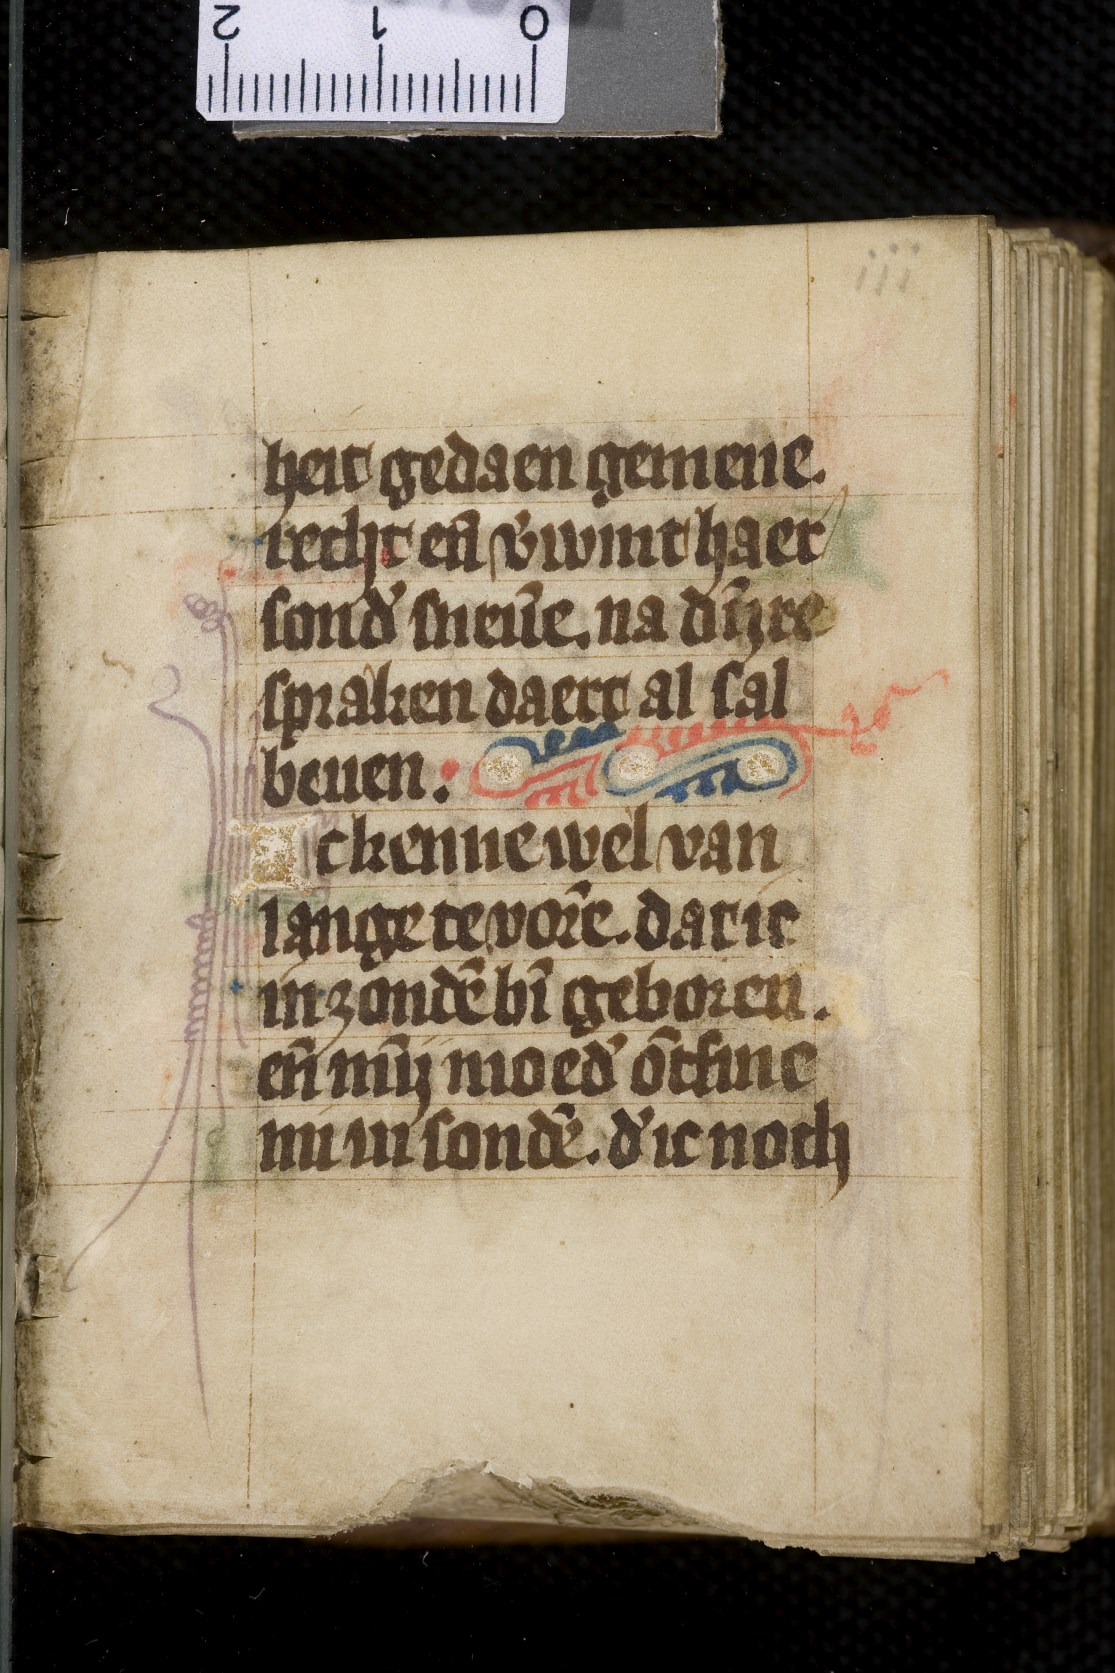 2 1 0
iii
heit gedaen gemene.
recht eñ v͛wint haer
sond͛ sneūe. na dīj̄re
spraken daert al sal
beuen:
Ic kenne wel van
lange te vorē. dat ic
in zondē bī geboren.
eñ mīj moed͛ ōtfinc
mi in sondē. d͛ ic noch